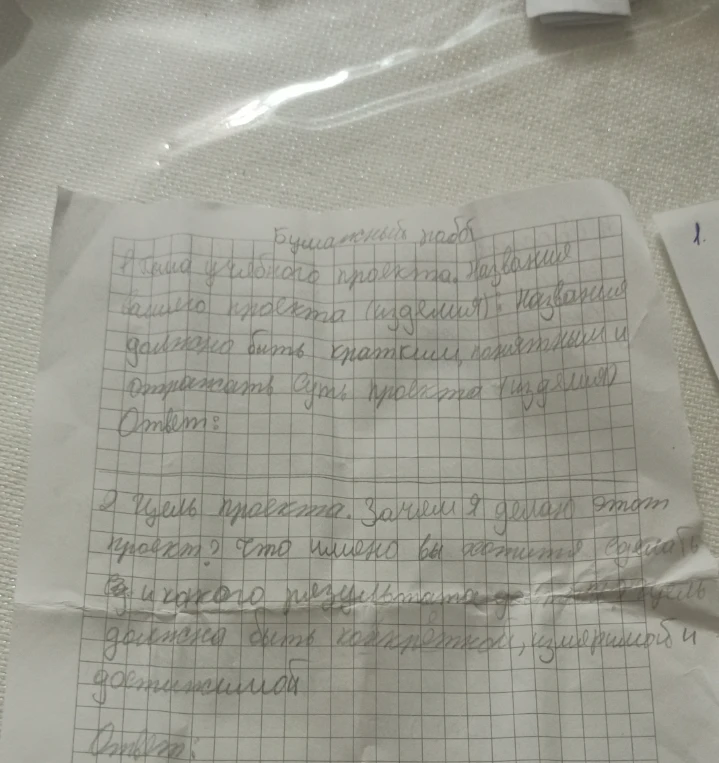 Бумажный набор
1 Тема учебного проекта. Названия
вашего проекта (изделия): Названия
должно быть кратким, понятным и
отражать суть проекта (изделия)
Ответ:
2 Цель проекта. Зачем я делаю этот
проект? Что имено вы хотите сделать
и какого результата цель
должна быть конкретной, измеримой и
достижимой
Ответ:
1.